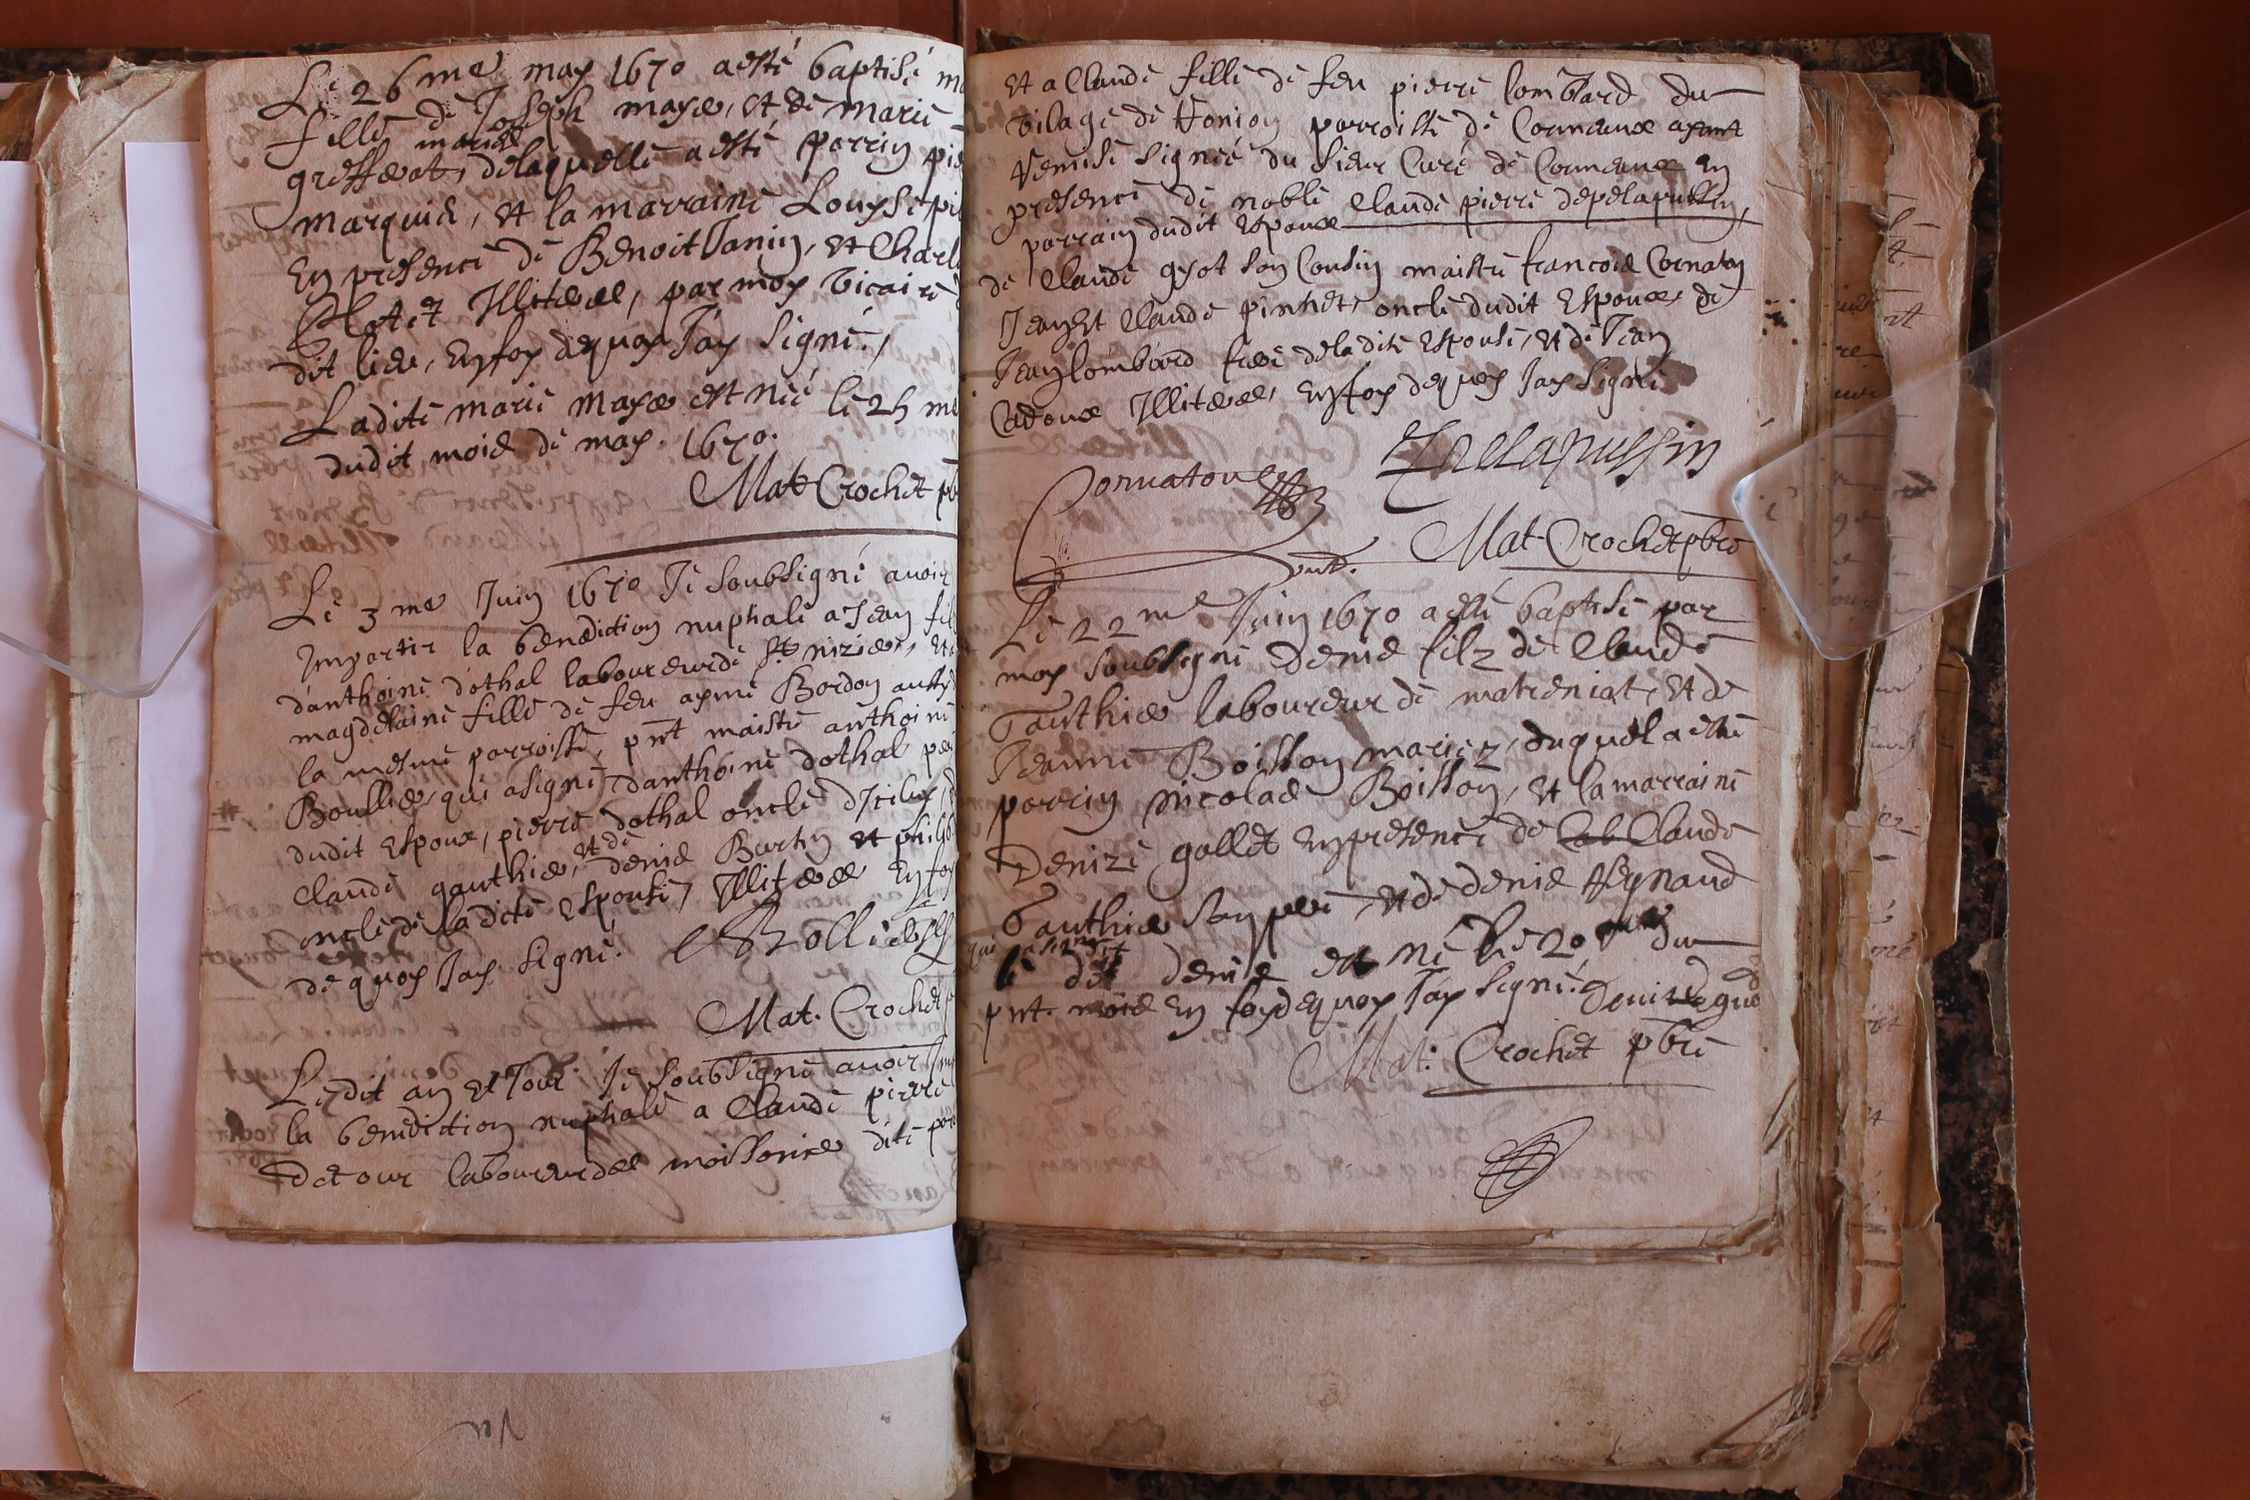 Le 26me may 1670 a esté baptisé
fille de Joseph maye, et de marie
mariés
greffivat, delaquelle a esté parrin
marquis, et la marraine Louyse
En presence de Benoit Janin, et Charle
Plotet Illiterés, par moy vicaire
dit lieu, En foy dequoy Jay signé.
Ladite marie maye est née le 25 me
dudit mois de may. 1670.
Mat Crochet pbre
Le 3me Juin 1670 Je soubsigné avoir
Impartir la benediction nuptiale a Jean
d'anthoine dothal laboureur de St nizier, et
magdelaine fille de feu ayme Bordon aussy
la mesme parroisse, pnt maistre anthoine
Boullier qui a signé, danthoine dothal pere
dudit Espoux, pierre dothal oncle d'Iceluy,
Claude gauthier, et de denis Burtin et philib
oncle de ladite Espouse, Illiterés En foy
de quoy Jay signé.
Mat. Crochet
Ledit an et Jour Je soubsigné avoir
la benediction nuptiale a Claude pierre
Detour laboureur des moissonies dite
Et a Claude fille de feu pierre lombard du
vilage de Honion parroisse de Cormoux ayant
remise signée du sieur Curé de Cormoux En
presence de noble Claude pierre depelapussin,
parrain dudit Espoux
de Claude gyot son Cousin maistre francois Cornaton
Jean et Claude pinhet, oncle dudit Espoux, de
Jean lombard frere de ladite Espouse, et de Jean
Cadoux Illiterés, En foy dequoy Jay signé
Cornaton
Delapussin
Mat Crochet pbre
Le 22me Juin 1670 a esté baptisé par
moy soubsigné denis filz de Claude
Gauthier laboureur de matreniat, et de
Jeanne Boisson mariez, duquel a esté
parrin nicolas Boisson, et la marraine
Denize gallet En presence de Claude
Gauthier son pere, et de denis Reynaud
qui a signé
le dit denis est né le 20 du
pnt mois En foy dequoy Jay signé.
Mat. Crochet pbre